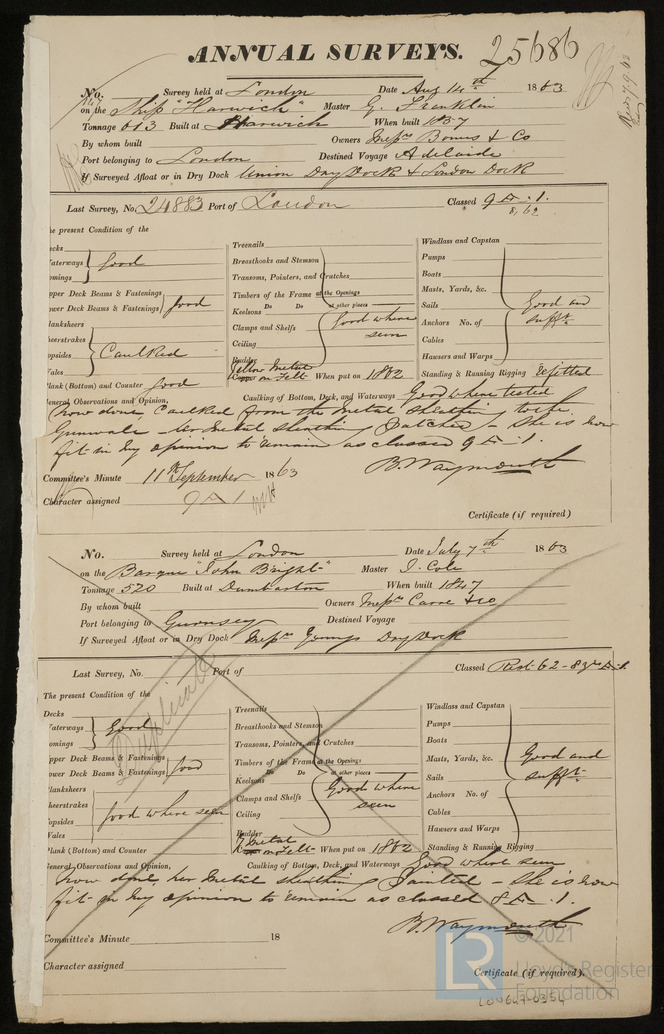 ANNUAL SURVEYS. 25686
No. Survey held at London Date Aug 14th 1863
on the Ship "Harwich" Master G.
Tonnage 613 Built at Harwich When built 1857
By whom built Owners Messrs Bonus & Co
Port belonging to London Destined Voyage Adelaide
If Surveyed Afloat or in Dry Dock Union Dry Dock & London Dock
Last Survey, No. 24883 Port of London Classed 9 A . 1.
8, 62
he present Condition of the
ecks
aterways } Good
omings
pper Deck Beams & Fastenings } good
ower Deck Beams & Fastenings
lanksheers
heerstrakes
opsides } Caulked
ales
lank (Bottom) and Counter good
Treenails
Breasthooks and Stemson
Transoms, Pointers, and Crutches
Timbers of the Frame at the Openings
Do Do at other places
Keelsons
Clamps and Shelfs Good where seen
Ceiling
Rudder
Yellow Metal
on Felt When put on 1862
Windlass and Capstan
Pumps
Boats
Masts, Yards, &c. Good and
Sails sufft.
Anchors No. of
Cables
Hawsers and Warps
Standing & Running Rigging Refitted
Caulking of Bottom, Deck, and Waterways Good where tested
General Observations and Opinion,
Now done, Caulked from the metal sheathing to the
Gunwale her metal sheathing patched – She is now
fit in my opinion to remain as classed 9 A . 1.
B. Waymouth
Committee's Minute 11th September 1863
Character assigned 9 A 1
Certificate (if required)
No. Survey held at London Date July 7th 1863
on the Barque "John Bright" Master J. Cole
Tonnage 520 Built at Dumbarton When built 1847
By whom built Owners Messrs Carre & Co
Port belonging to Guernsey Destined Voyage
If Surveyed Afloat or in Dry Dock Messrs Youngs Dry Dock
Last Survey, No. Port of Classed Rest. 62 - 8 yrs A . 1.
Duplicate
The present Condition of the
Decks
Waterways } Good
omings
pper Deck Beams & Fastenings } good
ower Deck Beams & Fastenings
lanksheers
heerstrakes
opsides } good where seen
Wales
lank (Bottom) and Counter
Treenails
Breasthooks and Stemson
Transoms, Pointers, and Crutches
Timbers of the Frame at the Openings
Do Do at other places
Keelsons
Clamps and Shelfs Good where seen
Ceiling
Rudder
Y. Metal
on Felt When put on 1862
Windlass and Capstan
Pumps
Boats
Masts, Yards, &c. Good and
Sails sufft.
Anchors No. of
Cables
Hawsers and Warps
Standing & Running Rigging
Caulking of Bottom, Deck, and Waterways Good where seen
General Observations and Opinion,
Now done, her metal sheathing painted – She is now
fit in my opinion to remain as classed 8 A . 1.
B. Waymouth
Committee's Minute 18
Character assigned
Certificate (if required).
LR © 2021
Lloyd's Register
Foundation
LON647-0354